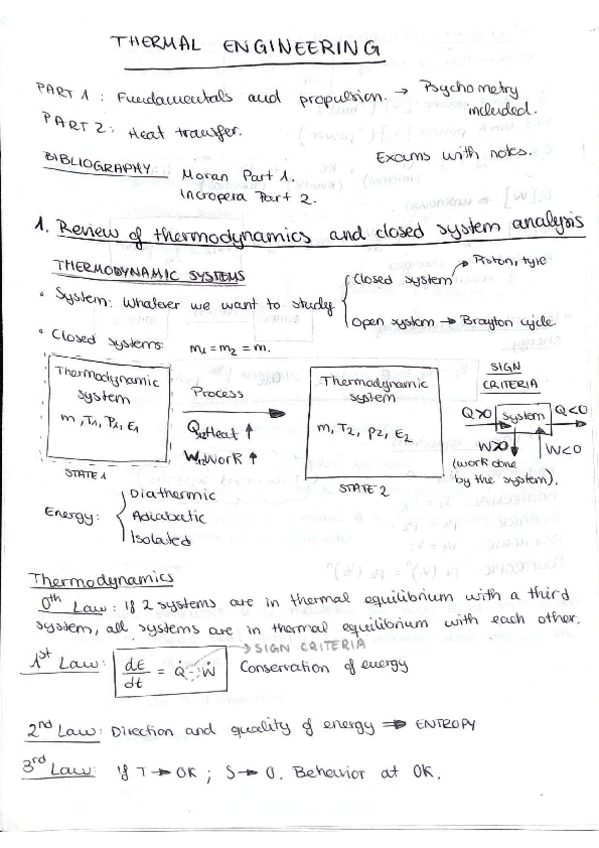 THERMAL ENGINEERING
PART 1: Fundamentals and propulsion. → Psychometry included.
PART 2: Heat transfer.
Exams with notes.
BIBLIOGRAPHY Moran Part 1.
Incropera Part 2.
1. Review of thermodynamics and closed system analysis
THERMODYNAMIC SYSTEMS
• System: Whatever we want to study
Closed system → Piston, tyre
Open system → Brayton cycle
• Closed systems: m1 = m2 = m.
Thermodynamic system
m, T1, P1, E1
STATE 1
Process
Q12 Heat ↑
W12 Work ↑
Thermodynamic system
m, T2, P2, E2
STATE 2
SIGN CRITERIA
Q>0 System Q<0
W>0 W<0
(work done by the system).
Energy:
Diathermic
Adiabatic
Isolated
Thermodynamics
0th Law: If 2 systems are in thermal equilibrium with a third
system, all systems are in thermal equilibrium with each other.
→ SIGN CRITERIA
1st Law: dE/dt = Q̇ - Ẇ Conservation of energy
2nd Law: Direction and quality of energy ⇒ ENTROPY
3rd Law: If T → 0K ; S → 0. Behavior at 0K.